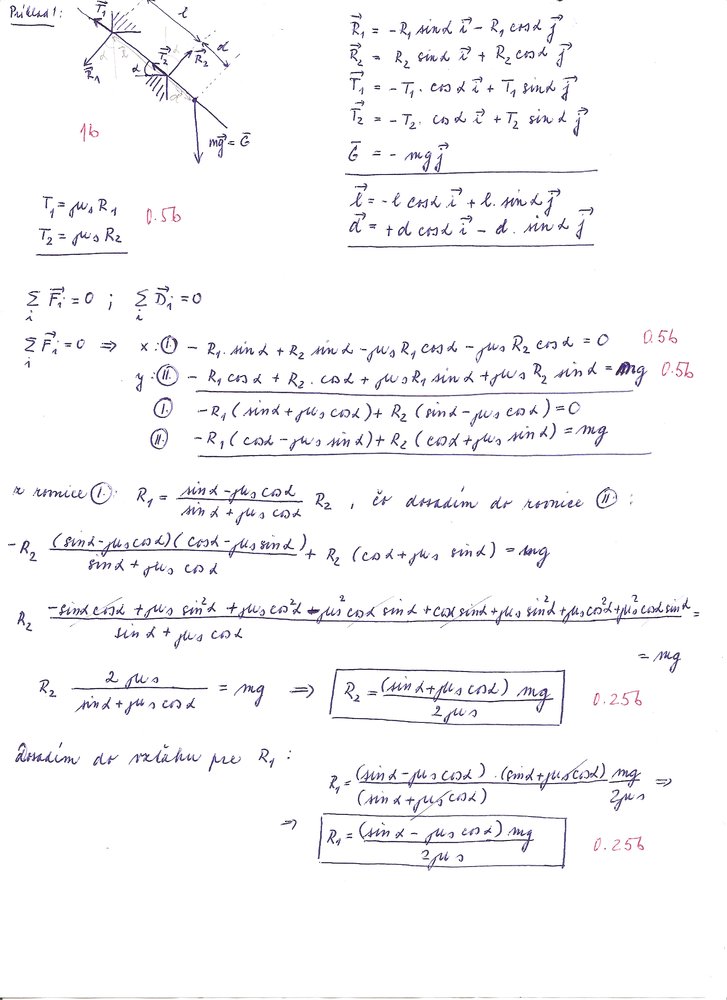 Príklad 1:
T⃗₁ l d
R⃗₁ α T⃗₂ R⃗₂
mg⃗ = G⃗
1b
R⃗₁ = -R₁ sinα i⃗ - R₁ cosα j⃗
R⃗₂ = R₂ sinα i⃗ + R₂ cosα j⃗
T⃗₁ = -T₁. cosα i⃗ + T₁ sinα j⃗
T⃗₂ = -T₂. cosα i⃗ + T₂ sinα j⃗
G⃗ = - mg j⃗
l⃗ = -l cosα i⃗ + l. sinα j⃗
d⃗ = +d cosα i⃗ - d. sinα j⃗
T₁ = μs R₁ 0.5b
T₂ = μs R₂
∑ᵢ F⃗ᵢ = 0 ; ∑ᵢ D⃗ᵢ = 0
∑ᵢ F⃗ᵢ = 0 ⇒ x: Ⓘ - R₁. sinα + R₂ sinα - μs R₁ cosα - μs R₂ cosα = 0 0.5b
y: (II.) - R₁ cosα + R₂. cosα + μs R₁ sinα + μs R₂ sinα = mg 0.5b
(I.) -R₁ (sinα + μs cosα) + R₂ (sinα - μs cosα) = 0
(II.) -R₁ (cosα - μs sinα) + R₂ (cosα + μs sinα) = mg
z rovnice (I.): R₁ = (sinα - μs cosα)/(sinα + μs cosα) R₂ , čo dosadím do rovnice (II.) :
-R₂ (sinα - μs cosα)(cosα - μs sinα)/(sinα + μs cosα) + R₂ (cosα + μs sinα) = mg
R₂ (-sinα cosα + μs sin²α + μs cos²α - μs² cosα sinα + cosα sinα + μs sin²α + μs cos²α + μs² cosα sinα)/(sinα + μs cosα) =
= mg
R₂ 2μs/(sinα + μs cosα) = mg ⇒ R₂ = (sinα + μs cosα) mg/2μs 0.25b
Dosadím do vzťahu pre R₁ :
R₁ = (sinα - μs cosα) . (sinα + μs cosα)/(sinα + μs cosα) mg/2μs ⇒
⇒ R₁ = (sinα - μs cosα) mg/2μs 0.25b